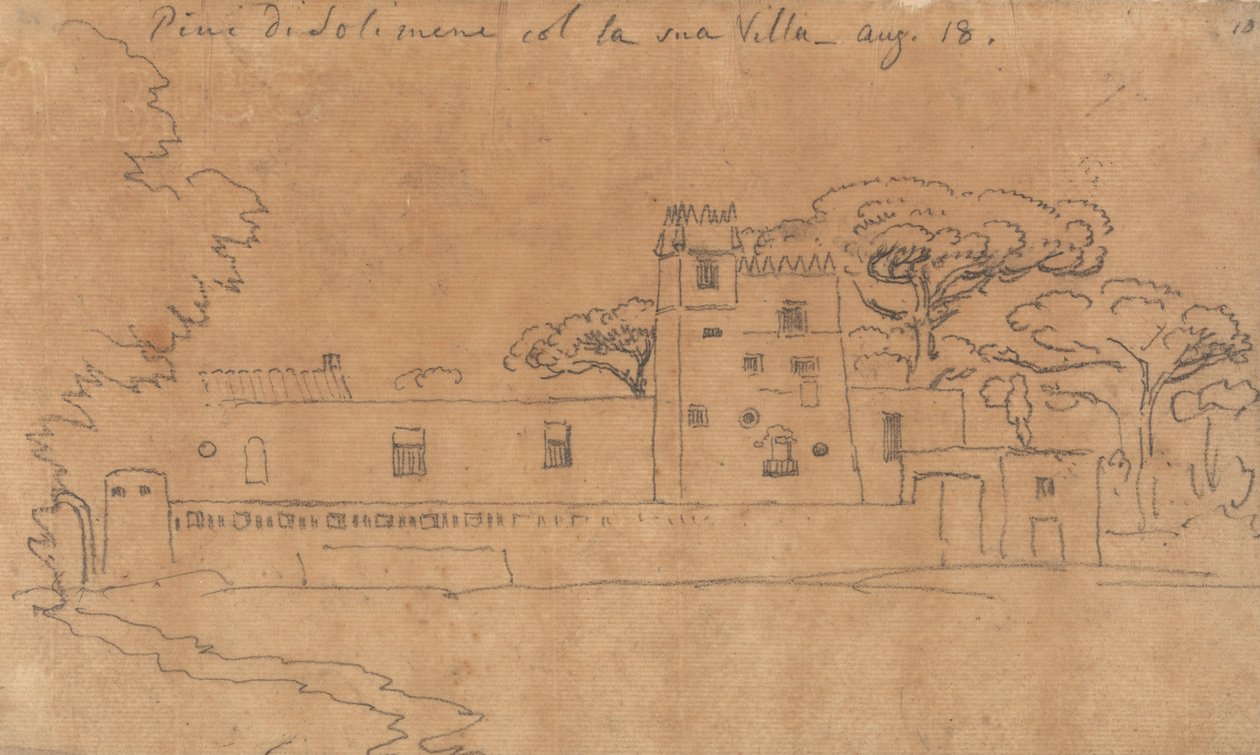 Pini di Solimene col la sua Villa_ aug. 18.
18